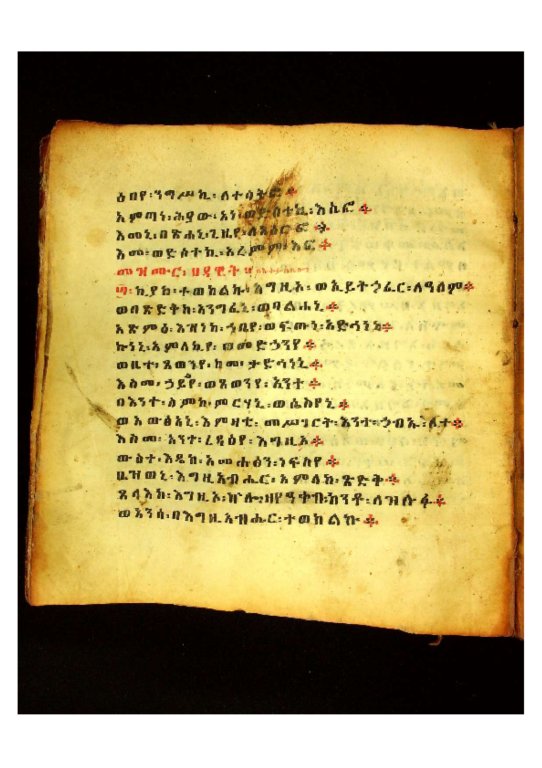 ዕበየ፡ንግሥኪ፡
አምጣነ፡ሕያው፡አነ፡
እመኒ፡በጽሐኒ፡ጊዜየ፡
እሙ፡ወድስተኪ፡
መዝሙር፡ዘዳዊት
ኪያከ፡ተወከልኩ፡እግዚኦ፡ወኢይትኃፈር፡ለዓለም፨
ወበጽድቅከ፡አንግፈኒ፡ወባልሐኒ፨
አጽምዕ፡እዝነከ፡ኀቤየ፡ወፍጡነ፡አድኅነኒ፨
ኩነኒ፡አምላኪየ፡ወመድኃንየ፨
ወቤተ፡ጸወንየ፡ከመ፡ታድኅነኒ፨
እስመ፡ኃይልየ፡ወጸወንየ፡አንተ፨
በእንተ፡ስምከ፡ምርሃኒ፡ወሴስየኒ፨
ወአውፅአኒ፡እምዛቲ፡መሥገርት፡እንተ፡ኀብኡ፡ሊተ፨
እስመ፡አንተ፡ረዳእየ፡እግዚኦ፨
ውስተ፡እዴከ፡አመሐፅን፡ነፍስየ፨
ቤዝወኒ፡እግዚአብሔር፡አምላከ፡ጽድቅ፨
ጸላእከ፡እግዚኦ፡ኵሎ፡ዘየዓቀብ፡ከንቶ፡ለዝሉፉ፨
ወአንሰ፡በእግዚአብሔር፡ተወከልኩ፨